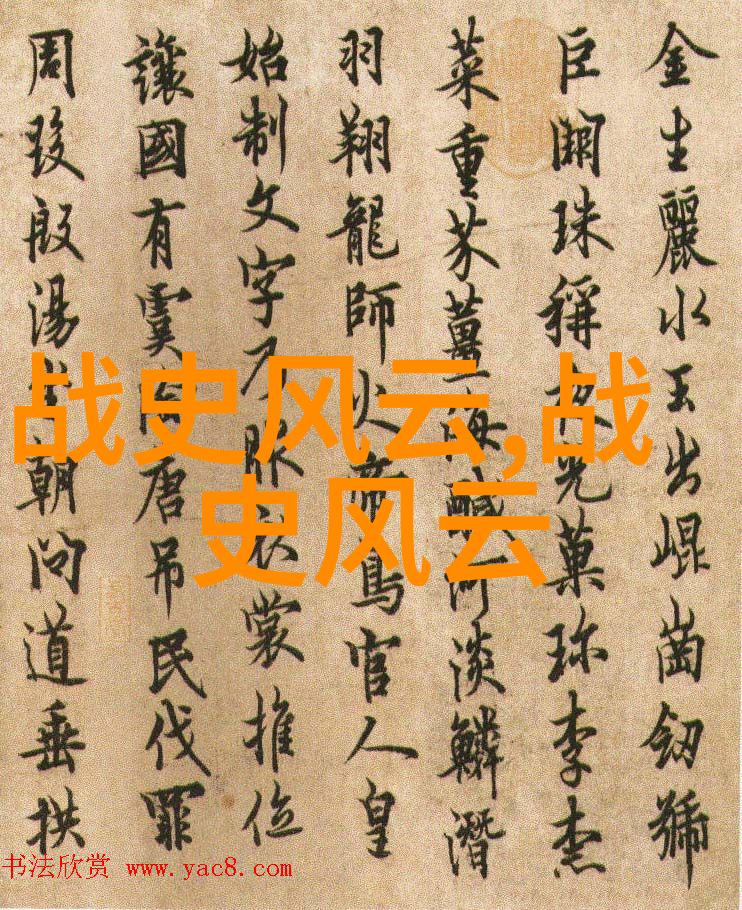 金生麗水玉出崐崗劒號
巨闕珠稱夜光菓珎李柰
菜重芥薑海醎河淡鱗潛
羽翔龍師火帝鳥官人皇
始制文字乃服衣裳推位
讓國有虞陶唐吊民伐罪
周發殷湯坐朝問道垂拱
战史风云,战
史风云
书法欣赏 www.yac8.com